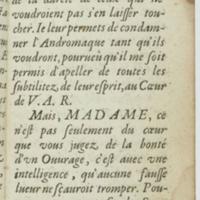 voudroient pas s'en laisser tou-
cher. Ie leur permets de condam-
ner l'Andromaque tant qu'ils
voudront, pourueu qu'il me soit
permis d'apeller de toutes les
subtilitez, de leur esprit, au Cœur
de V. A. R.
Mais, MADAME, ce
n'est pas seulement du cœur
que vous jugez de la bonté
d'vn Ouurage, c'est auec vne
intelligence, qu'aucune fausse
lueur ne sçauroit tromper. Pou-